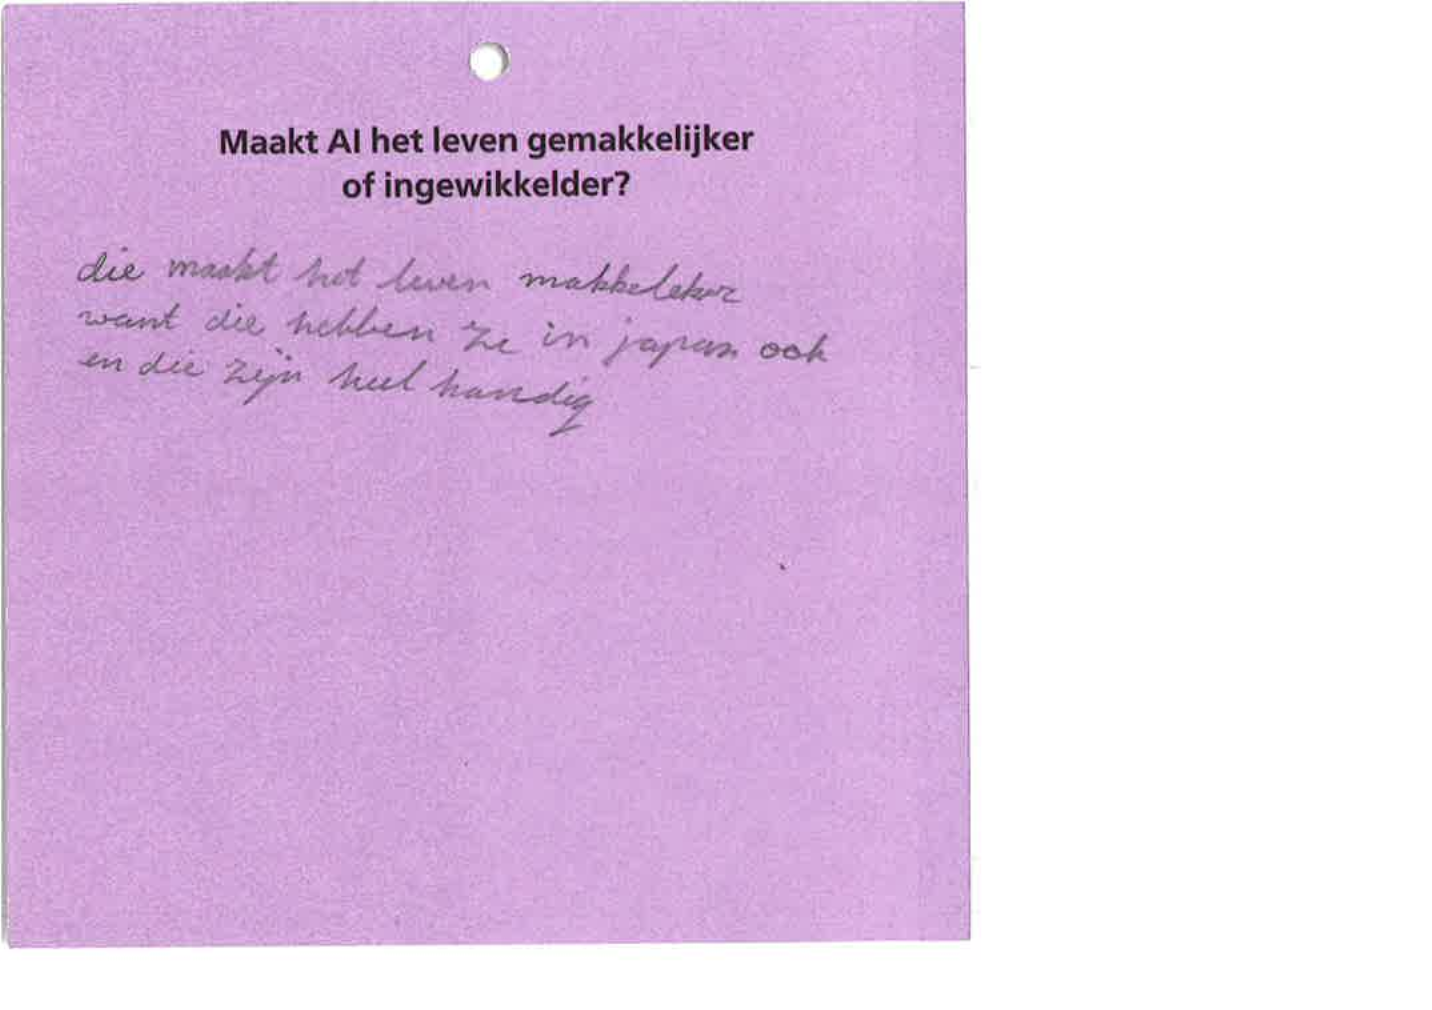 Maakt AI het leven gemakkelijker
of ingewikkelder?
die maakt het leven makkeleker
want die hebben ze in japan ook
en die zijn heel handig